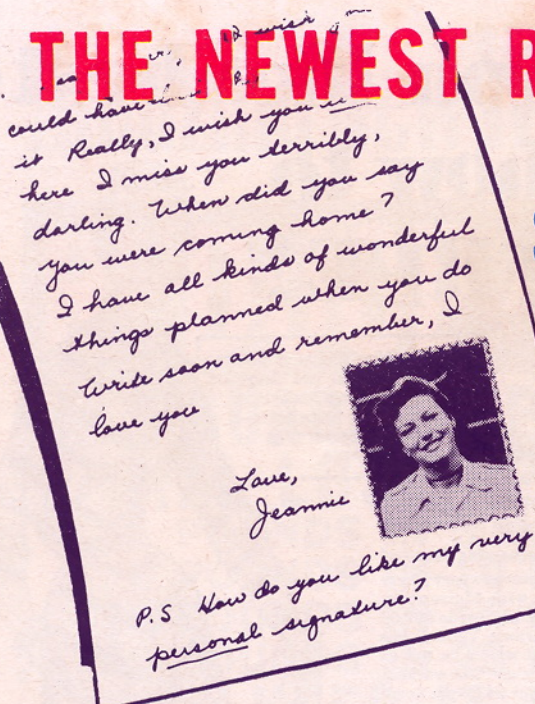 I wish
THE NEWEST R
could have
it Really, I wish you
here I miss you terribly,
darling. When did you say
you were coming home?
I have all kinds of wonderful
things planned when you do
Write soon and remember, I
love you
Love,
Jeannie
P.S How do you like my very
personal signature?